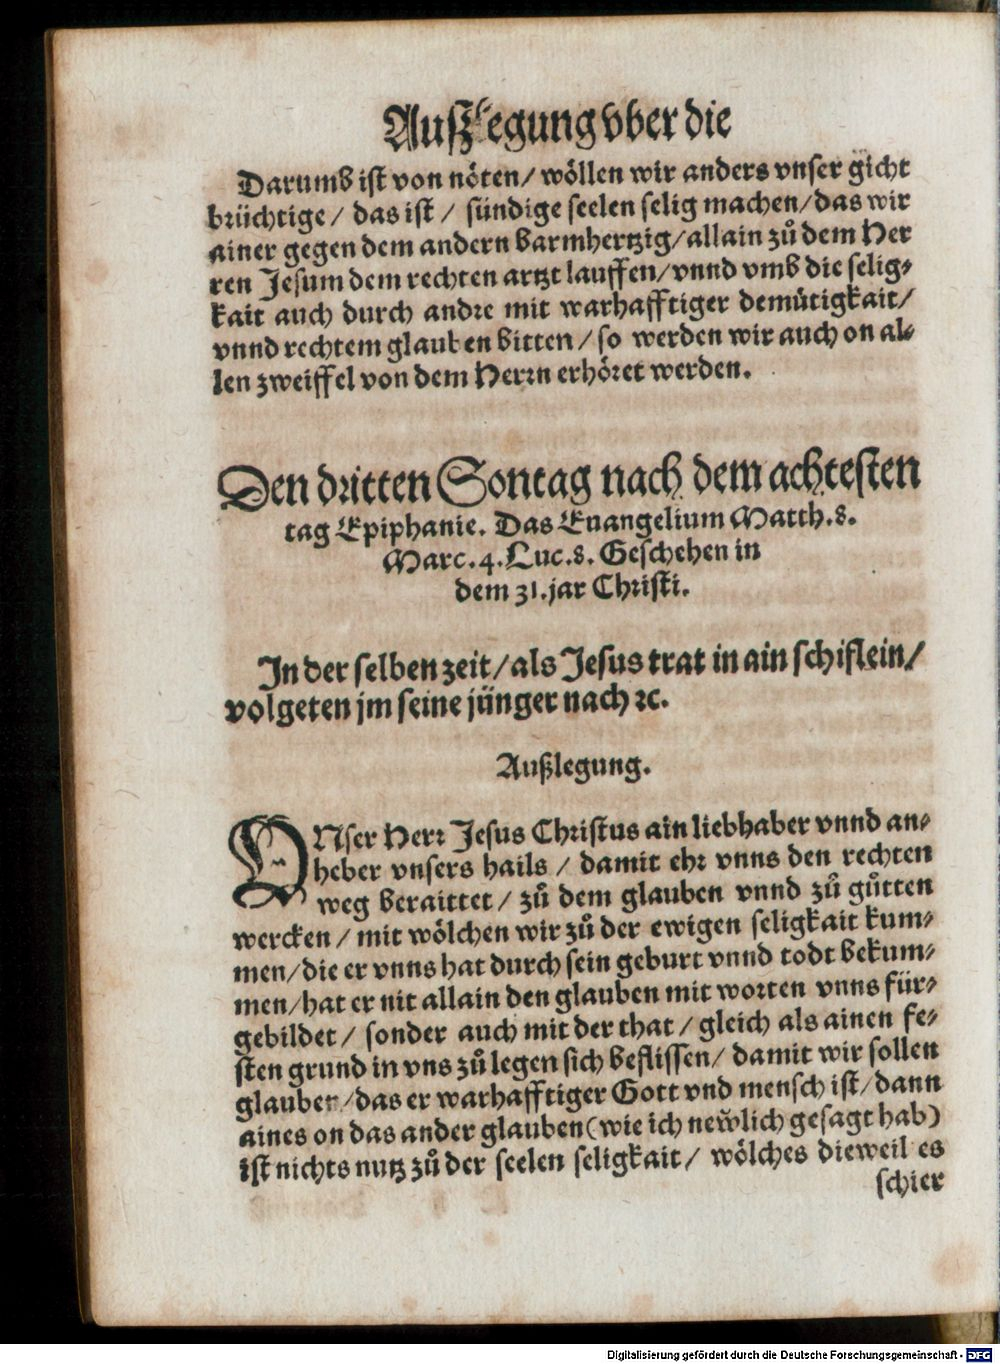 Außlegung vber die
Darumb ist von nöten/ wöllen wir anders vnser gicht
brüchtige/ das ist/ sündige seelen selig machen/das wir
ainer gegen dem andern barmhertzig/allain zů dem Her
ren Jesum dem rechten artzt lauffen/vnnd vmb die selig⸗
kait auch durch andre mit warhafftiger demütigkait/
vnnd rechtem glauben bitten/so werden wir auch on al⸗
len zweiffel von dem Herrn erhöret werden.
Den dritten Sontag nach dem achtesten
tag Epiphanie. Das Euangelium Matth.8.
Marc.4.Luc.8. Geschehen in
dem 31.jar Christi.
In der selben zeit/als Jesus trat in ain schiflein/
volgeten jm seine jünger nach ꝛc.
Außlegung.
VNser Herr Jesus Christus ain liebhaber vnnd an⸗
heber vnsers hails/ damit ehr vnns den rechten
weg beraittet/ zů dem glauben vnnd zů gůtten
wercken/mit wölchen wir zů der ewigen seligkait kum⸗
men/die er vnns hat durch sein geburt vnnd todt bekum⸗
men/hat er nit allain den glauben mit worten vnns für⸗
gebildet/ sonder auch mit der that/gleich als ainen fe⸗
sten grund in vns zů legen sich beflissen/ damit wir sollen
glauben/das er warhafftiger Gott vnd mensch ist/dann
aines on das ander glauben(wie ich newlich gesagt hab)
ist nichts nutz zů der seelen seligkait/ wölches dieweil es
schier
Digitalisierung gefördert durch die Deutsche Forschungsgemeinschaft - DFG